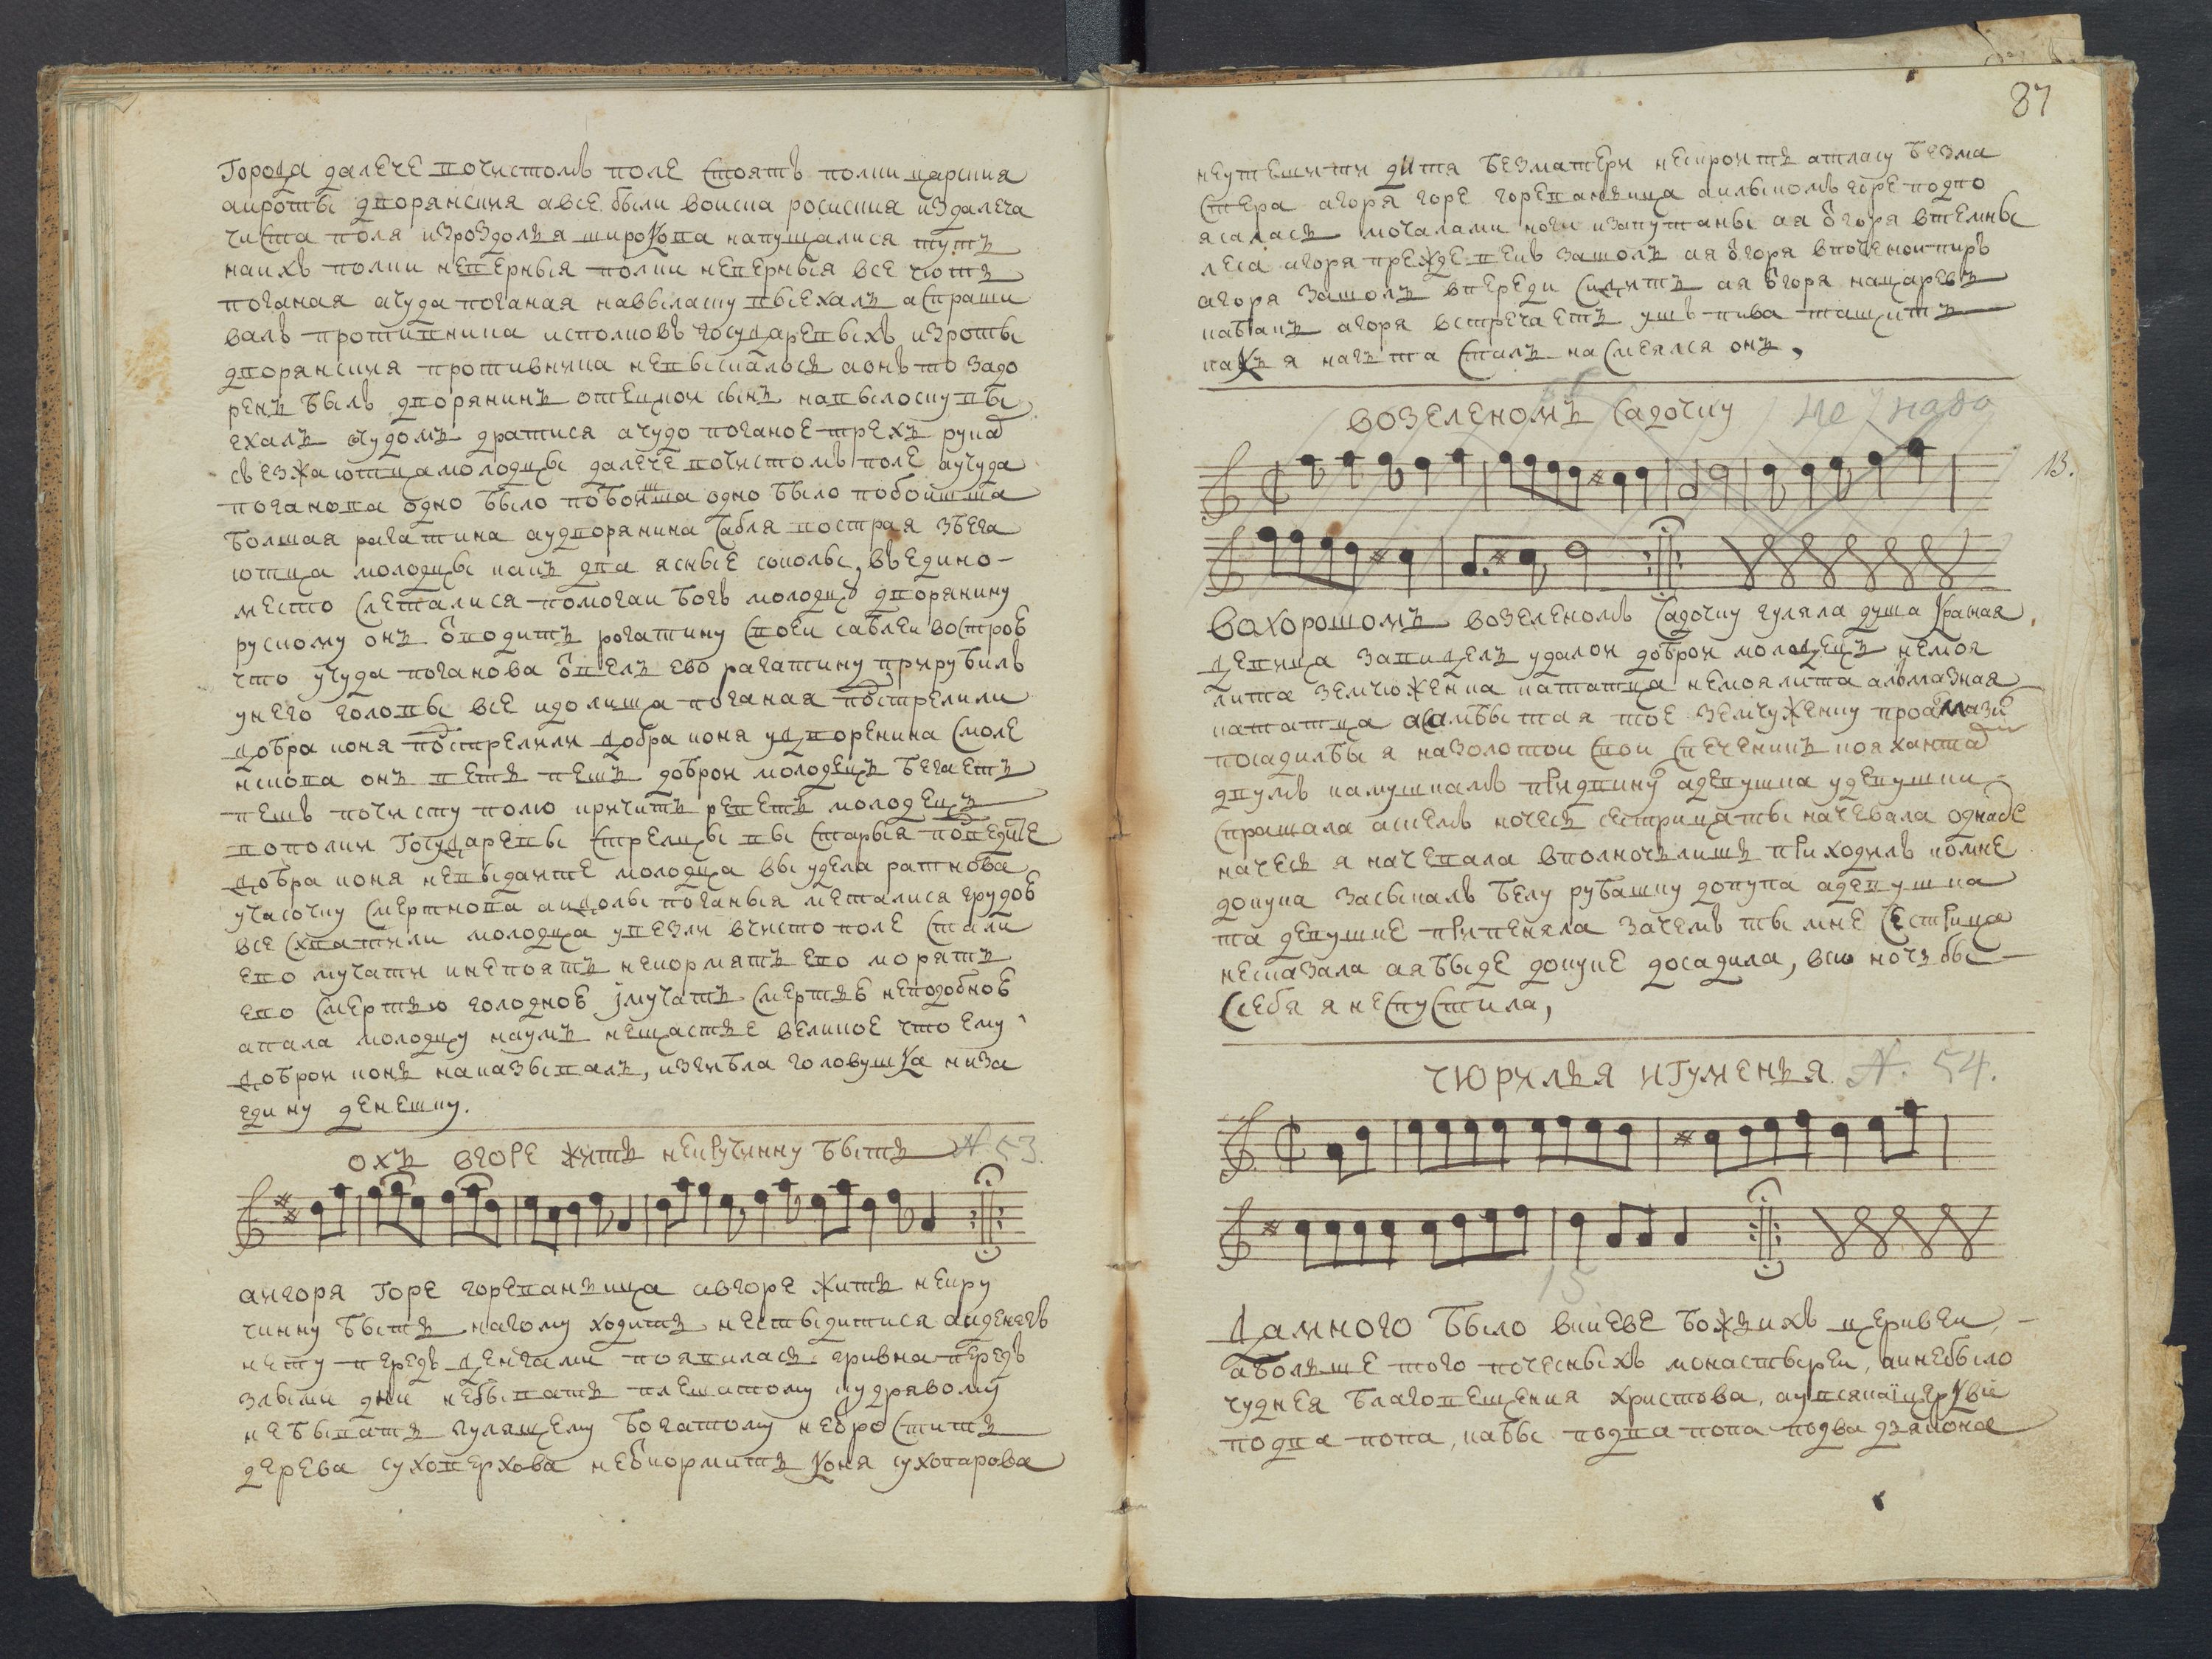 Города далече почистомъ поле стоятъ полки царския
аироты дворянския авсе были воиска росиския издалеча
чиста поля изроздолья широкова напущалися тутъ
наихъ полки неверныя полки неверныя все чютъ
поганая ачуда поганая навыласку выехалъ аспраши
валъ противника исполковъ государевыхъ изроты
дворянския противника невыскалось аонъ то задо
ренъ былъ дворянинъ отецкои сынъ навылоску вы
ехалъ счудомъ дратися ачудо поганое трехъ рукаѣ
съезжаютца молодцы далече почистомъ поле аучуда
поганова одно было побоишша одно было побоишша
болшая рагатина аудворянина сабля вострая збега
ютца молодцы какъ два ясные соколы, въедино-
место слеталися помогаи богъ молодцу дворянину
рускому онъ отводитъ рогатину своеи саблеи вострое
что учуда поганова отвелъ ево рагатину прирубилъ
унего головы все идолища поганая пострелили
добра коня пострелили добра коня удворенина смоле
нскова онъ ветъ пешъ доброи молодецъ бегаетъ
пешъ почисту полю кричитъ реветъ молодецъ
вополки Государевы стрелцы вы старыя подведите
добра коня невыдаите молодца вы удела ратнова
участочку смертнова аидолы поганыя металися грудоѣ
все схватили молодца увезли вчисто поле стали
ево мучати инепоятъ некормятъ ево морятъ
ево смертью голодное імучатъ смертье неподобное
апала молодцу наумъ нещастье великое что ему
доброи конь наказывалъ, изгибла головушка низа
едину денешку.
охъ вгоре жить некручинну быть № 53.
аигоря Горе гореваньица авгоре жить некру
чинну быть нагому ходить нестыдитися аиденегъ
нету передъ денгами появилась гривна передъ
злыми дни небывать плешатому кудрявому
небывать гулящему богатому неотростить
дерева суховерхова неоткормить коня сухопарова
87
неутешити дитя безматери нескроить атласу безма
стера агоря горе гореваньица аилыкомъ горе подпо
ясалась мочалами ноги изапутаны ая отгоря втемны
леса агоря прежде векъ зашолъ ая отгоря впочеснои пиръ
агоря зашолъ впереди сидитъ ая отгоря нацаревъ
кабакъ агоря встречаетъ ужъ пива тащитъ
какъ я нагъ та сталъ насмеялся онъ,
возеленомъ садочку
не надо
13.
вахорошомъ возеленомъ садочку гуляла душа красная
девица завиделъ удалои доброи молодецъ немоя
лита земчюженка катаитца немоялита алмазная
катаитца
посадилбы я назолотои свои спеченикъ
двумъ камушкамъ адевушка удевушки
спрашала аскемъ ночесь сестрицаты начевала
начесь я начевала вполночьлишь приходилъ комне
докука засыпалъ белу рубашку докука адевушка
та девушке припеняла зачемъ ты мне сестрица
несказала аябыде докуке досадила, всю ночь бы
Ссебя я неспустила,
чюрилья игуменья № 54.
15
Дамного было вкиеве божьихъ церквеи, -
аболъше того почесныхъ монастыреи, аинебыло
чуднея благовещения христова, ау всякаі церкви
подва попа, кабы подва попа подва дьякона